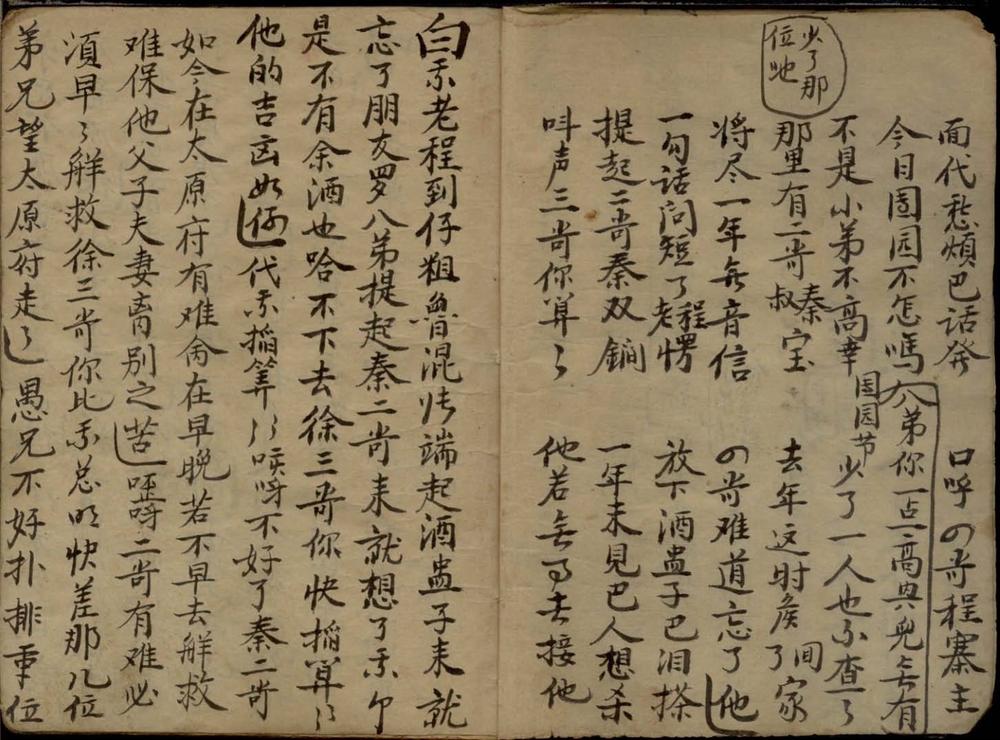 面代愁煩巴话発 口呼四哥程寨主
今日团园不怎嗎 八弟你一点高興兒无有
不是小弟不高幸 团园节少了一人也不查了
少了那位哋
那里有二哥秦叔宝 去年这时侯间了家
将尽一年无音信 四哥难道忘了他
一句话问短了老程愣 放下酒盅子巴泪搽
提起二哥秦双锏 一年未見巴人想杀
呌声三哥你算了 他若无事去接他
白 不老程到仔粗魯混帐端起酒盅子来就
忘了朋友罗八弟提起秦二哥来就想了不
是不有余酒也哈不下去徐三哥你快稻算了
他的吉凶如何 代不稻算了咳呀不好了秦二哥
如今在太原府有难命在早晚若不早去解救
难保他父子夫妻离别之苦 哑呀二哥有难必
湏早了解救徐三哥你比不总明快差那几位
弟兄望太原府走了 愚兄不好扑排重位